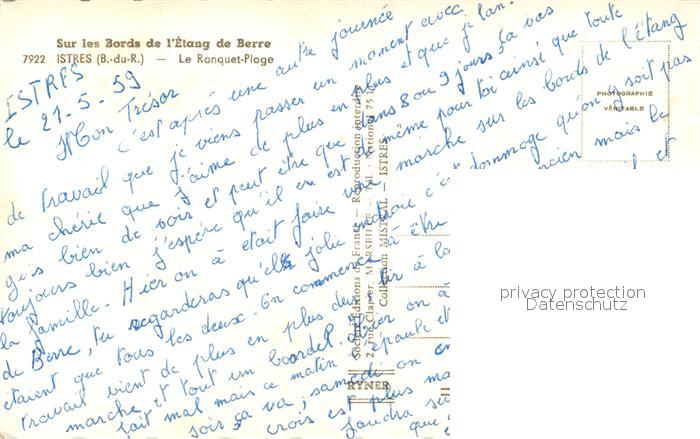 Sur les Bords de l'Étang de Berre
7922 ISTRES (B.-du-R.) — Le Ranquet-Plage
ISTRES
le 21-5-59
Mon Trésor
C'est après une autre journée
de travail que je viens passer un moment avec
ma chérie que j'aime de plus en plus et que je lan-
guis bien de voir et peut être que dans 8 ou 9 jours ça vas
toujours bien j'espère qu'il en est de même pour toi ainsi que toute
la famille. Hier on à était faire une marche sur les bords de l'étang
de Berre, tu regarderas qu'elle jolie endroie c'est dommage qu'on y soit pas
étaient que tous les deux. On commence à être ancien mais le
travail vient de plus en plus dur
marche et tout un bordel. Hier on à
fait mal mais ce matin épaule et
soir ça va, samedi on
crois est plus
faudra
que
PHOTOGRAPHIE
VÉRITABLE
Société Editions de France — Reproduction interdite
2, rue Clapier, MARSEILLE — Tél. : National 75
Collection MISTRAL — ISTRES
RYNER
privacy protection
Datenschutz